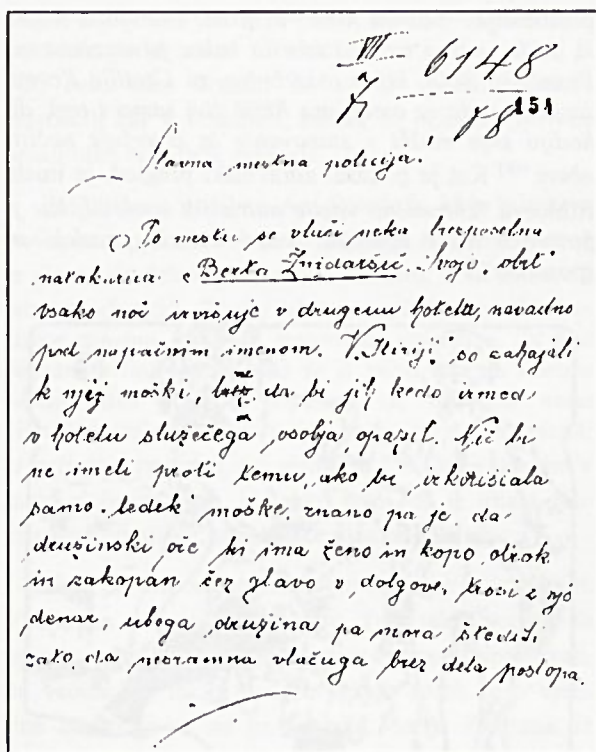 VII 6148
7. 18 154
Slavna mestna policija!
Po mestu se vlači neka brezposelna
natakarica Berta Žnidaršič. Svojo obrt
vsako noč izvršuje v drugemu hotelu, navadno
pod napačnim imenom. V "Iliriji" so zahajali
k njej moški, ne da bi jih kedo izmed
v hotelu služečega osobja opazil. Nič bi
ne imeli proti temu, ako bi izkoriščala
samo ledek moške, znano pa je, da
družinski oče ki ima ženo in kopo otrok
in zakopan čez glavo v dolgove, trosi z njo
denar, uboga družina pa mora štediti
zato, da nesramna vlačuga brez dela postopa.